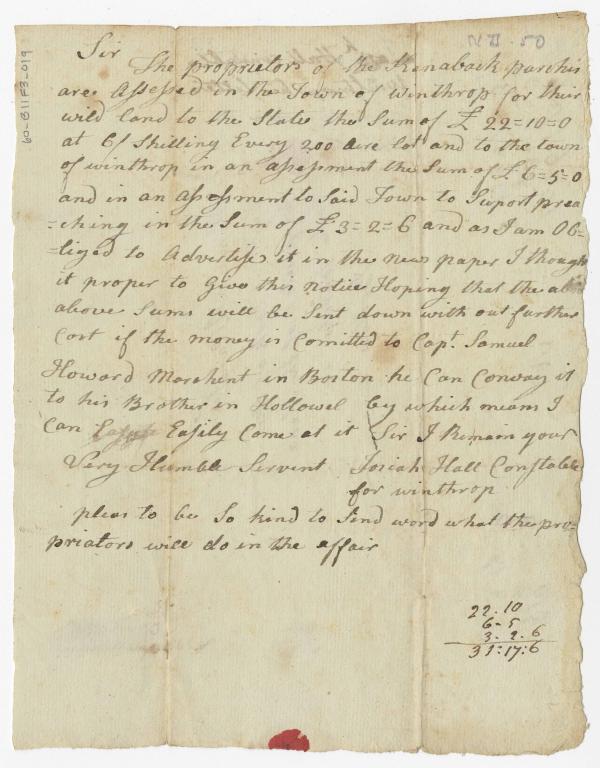 60-G11F3-019
NB. 50
Sir The proprietors of the Kanaback purchis
are Assessed in the Town of Winthrop for their
wild land to the State the Sum of £ 22=10=0
at 6/ Shilling Every 200 acre lot and to the town
of winthrop in an assessment the Sum of £ 6=5=0
and in an assessment to Said Town to Suport prea
=ching in the Sum of £ 3=2=6 and as I am Ob=
=liged to Advertise it in the news paper I though
it proper to Give this notice Hoping that the
above Sums will be Sent down with out further
Cost if the money is Comitted to Capt. Samuel
Howard Marchent in Boston he Can Convay it
to his Brother in Hollowel by which means I
Can Easily Come at it Sir I Remain your
Very Humble Servent Josiah Hall Constable
for winthrop
pleas to be So kind to Send word what the pro=
priators will do in the affair
22. 10
6- 5
3. 2. 6
31:17:6